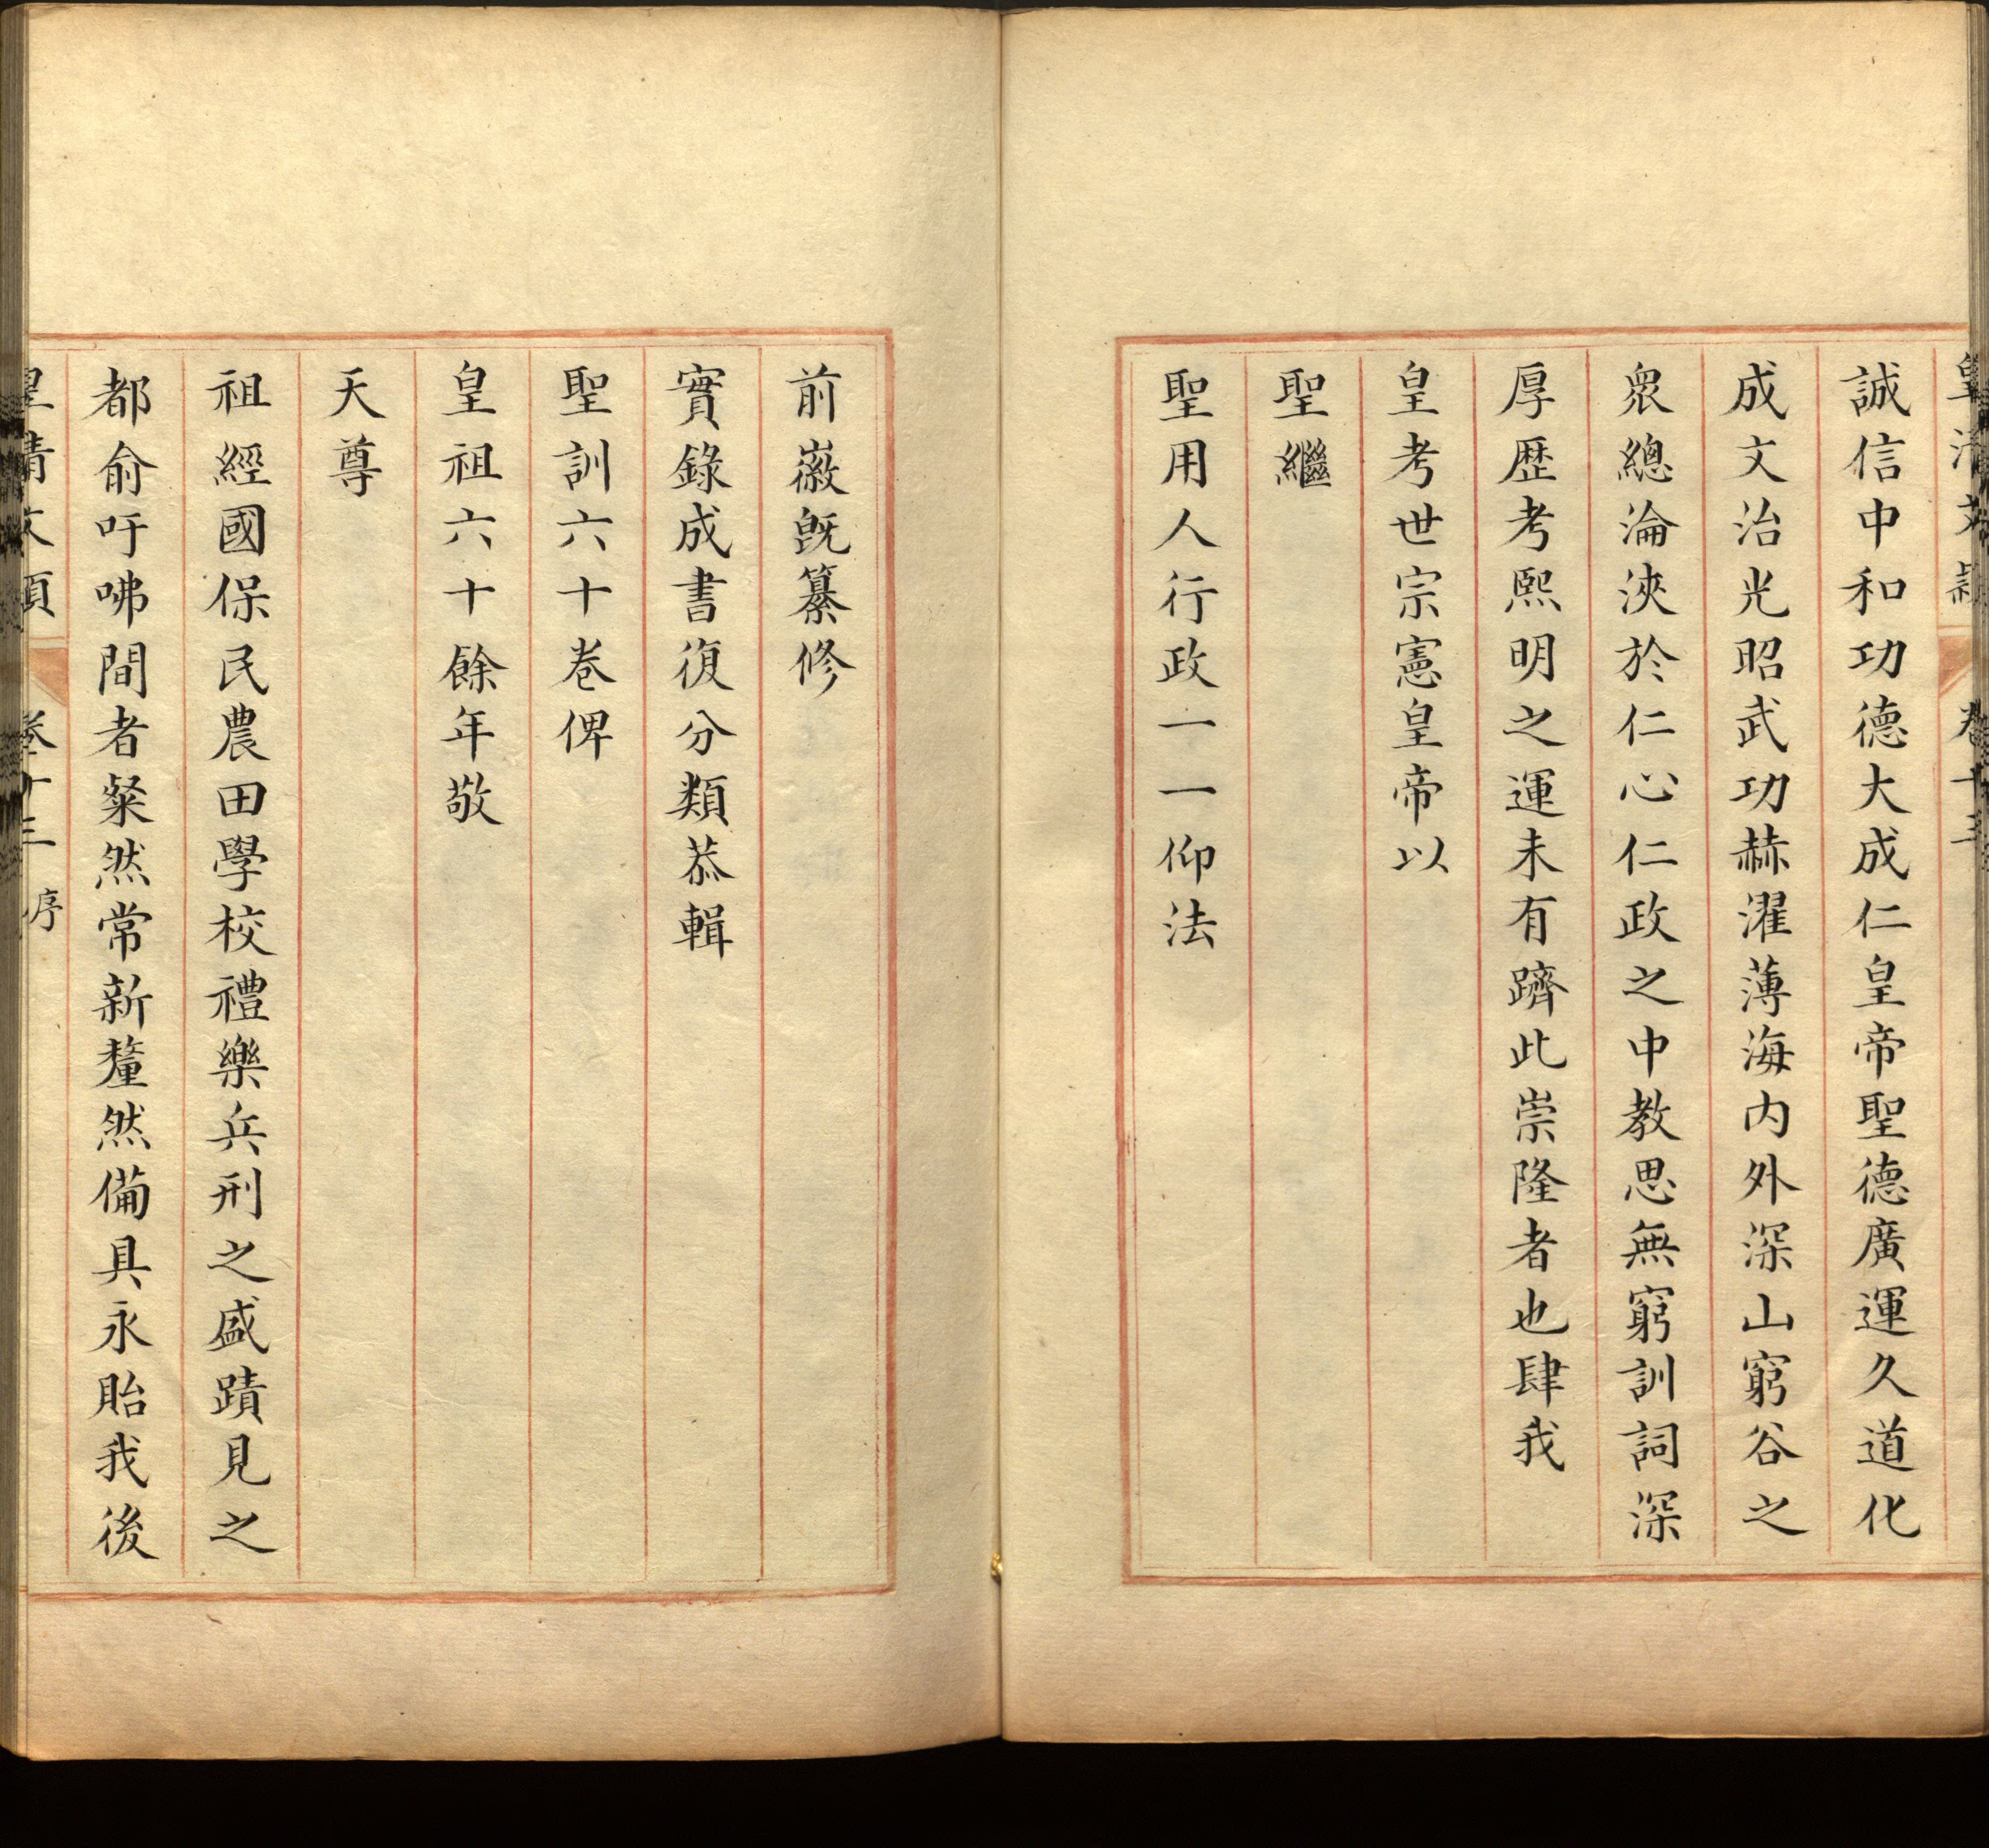 皇清文穎 卷十三
誠信中和功德大成仁皇帝聖德廣運久道化
成文治光昭武功赫濯薄海内外深山窮谷之
衆總淪浹於仁心仁政之中教思無窮訓詞深
厚歴考熙明之運未有躋此崇隆者也肆我
皇考世宗憲皇帝以
聖繼
聖用人行政一一仰法
前徽既纂修
實錄成書復分類恭輯
聖訓六十卷俾
皇祖六十餘年敬
天尊
祖經國保民農田學校禮樂兵刑之盛蹟見之
都俞吁咈間者粲然常新釐然備具永貽我後
皇清文穎 卷十三 序